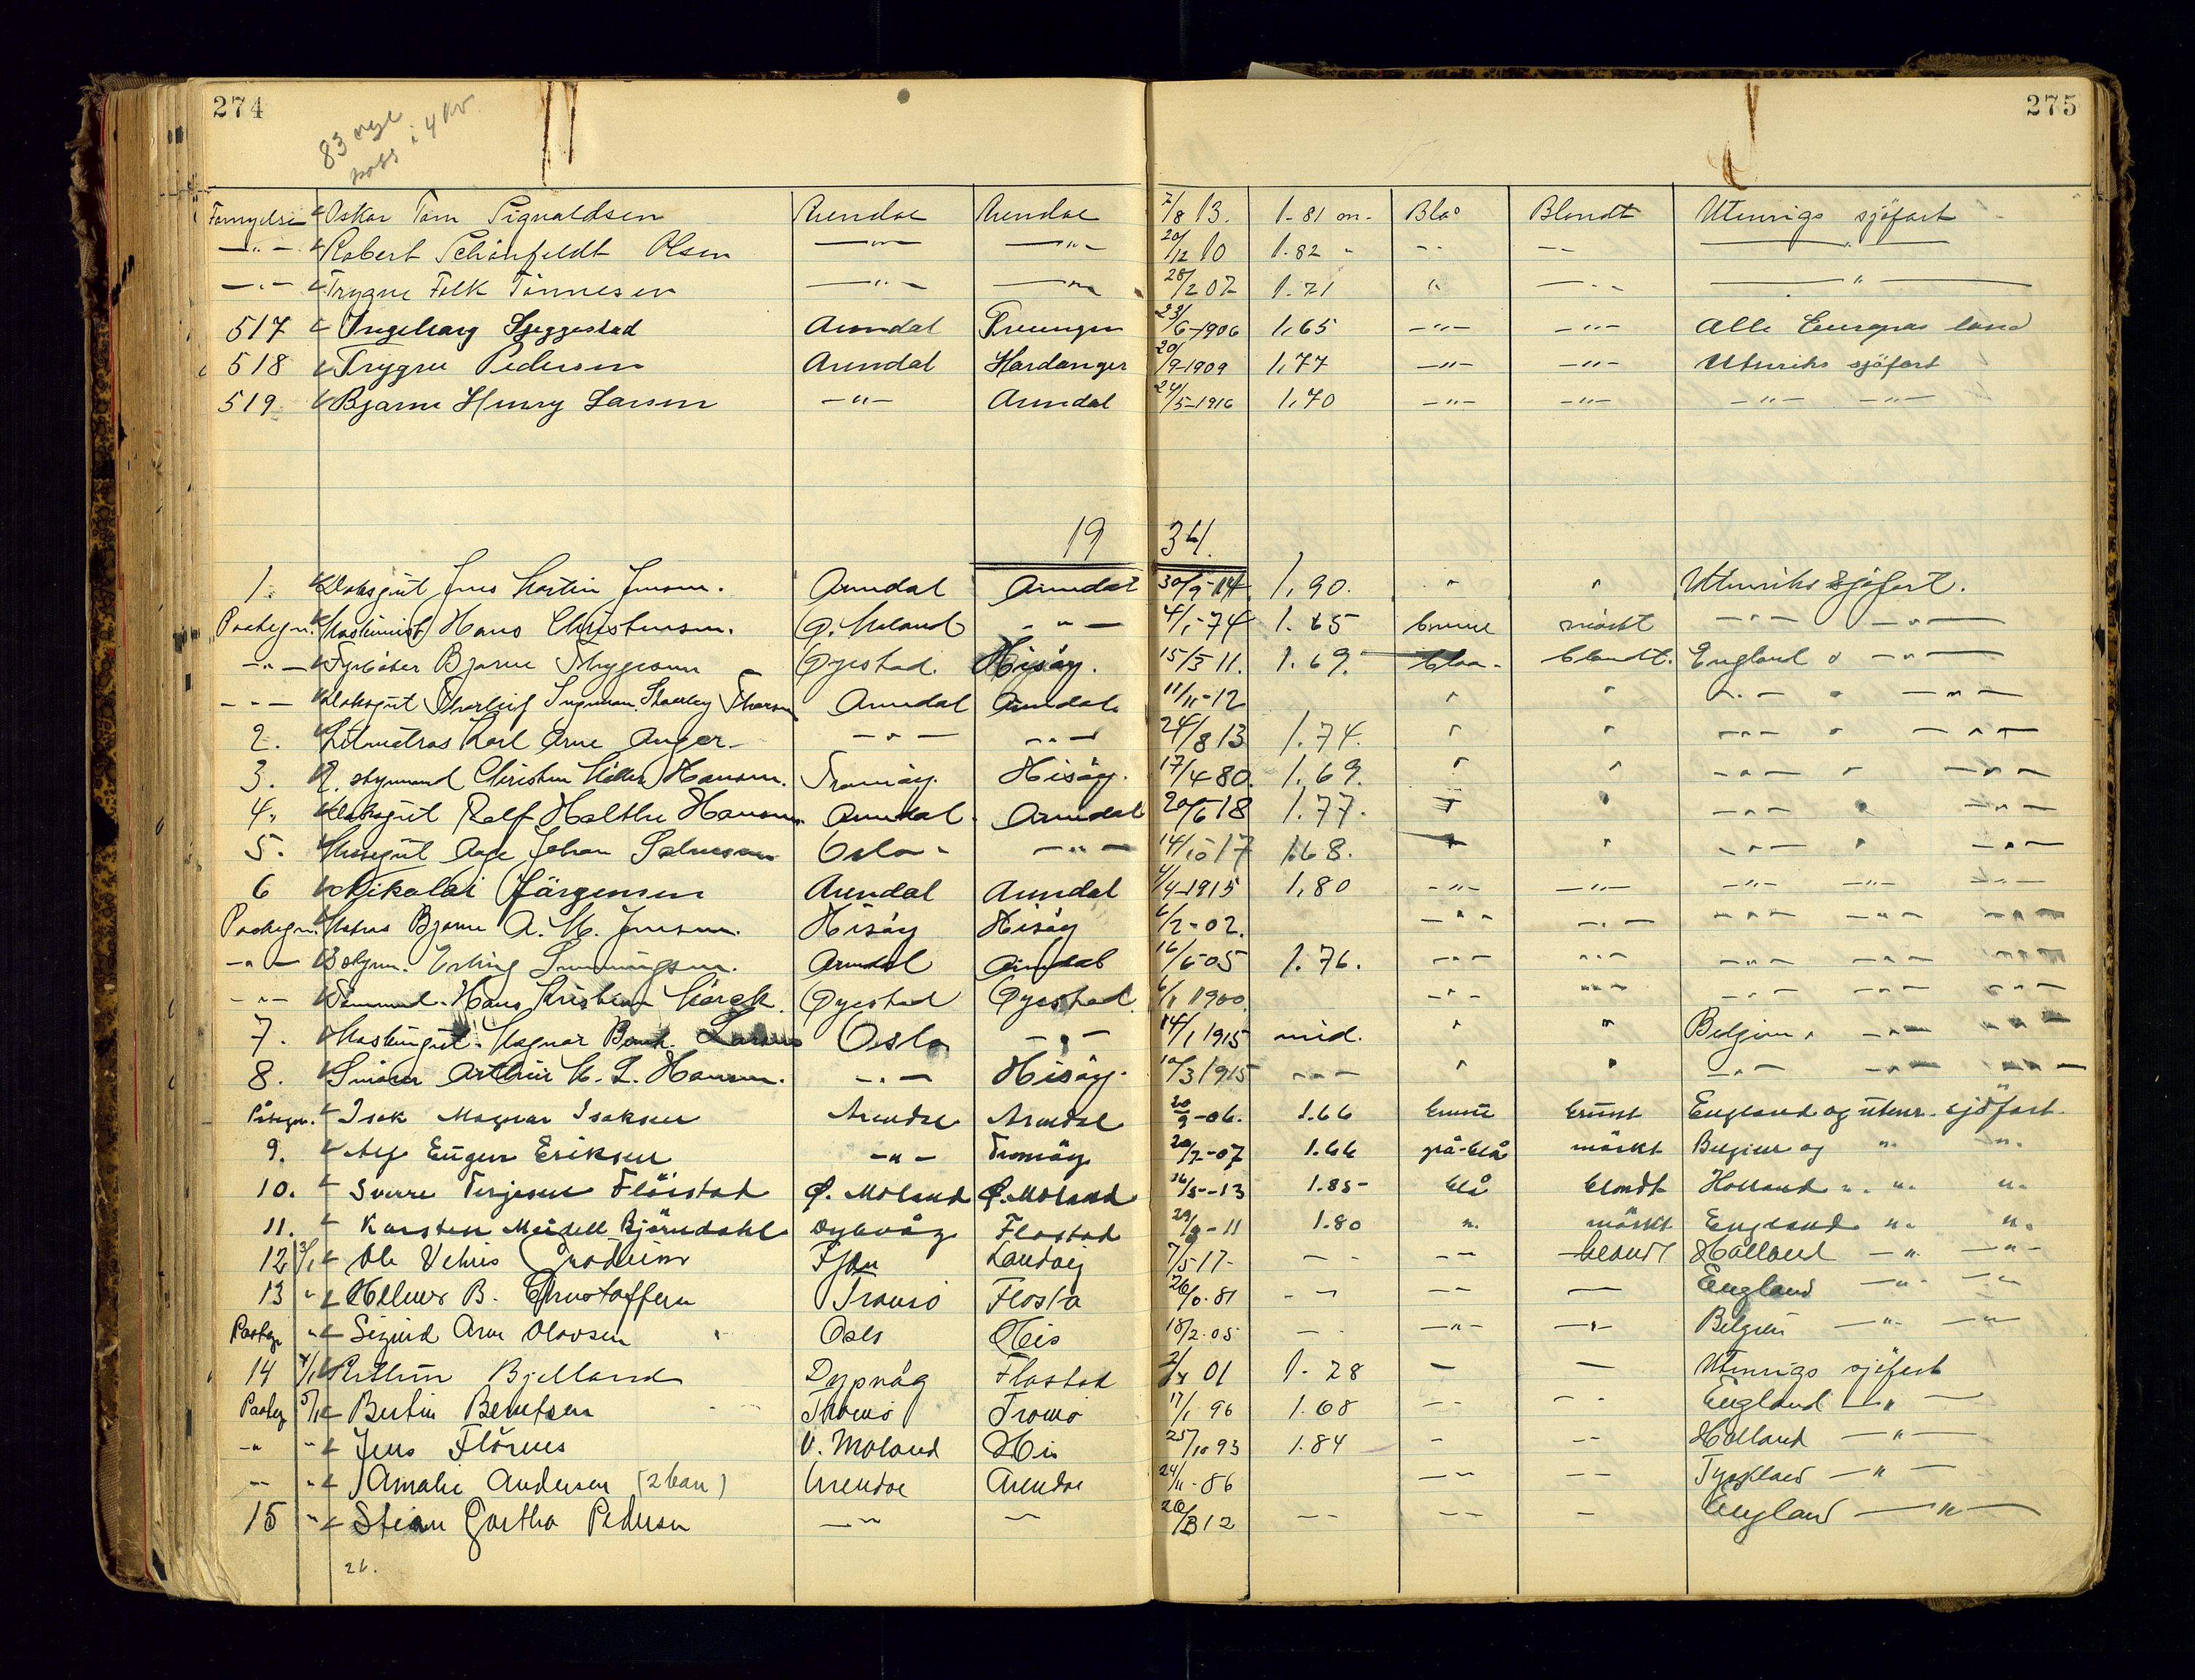 274
275
83 nye
pass i 4 kv.
Fornyelse Oskar Tom Sigvaldsen Arendal Arendal 7/8 13. 1.81 m. Blå Blondt Utenrigs sjöfart
—"— Robert Schönfeldt Olsen —"— —"— 20/12 10 1.82 " -- -- —"—
—"— Trygve Falk Tönnesen —"— —"— 28/2 02 1.71 " —"— —"—
517 Ingeborg Skjeggestad Arendal 23/6-1906 1,65 —"— —"— Alle Europas land
518 Trygve Pedersen Arendal Hardanger 20/9-1909 1,77 —"— —"— Utenriks sjöfart
519 Bjarne Henry Larsen —"— Arendal 24/5-1916 1,70 —"— —"— —"— —"—
19 34.
1. Dæksgut Jens Martin Jensen. Arendal Arendal 30/9-14. 1,90. " " Utenriks sjöfart.
Paategn. Maskinist Hans Christensen. Ø. Moland —"— 4/1-74 1.65 brune mörkt —"— —"—
—"— Fyrböter Bjarne Thygesen Öyestad. Hisöy. 15/5 11. 1.69. blaa. blondt. England o —"—
—"— Dæksgut Thorleif Ingeman Thorsen Arendal Arendal 11/11-12 " " —"— " —"—
2. Letmatros Karl Arne Anger. —"— —"— 24/8 13 1.74. " " —"— " —"—
3. 2. styrmand Christen Möller Hansen. Tromöy. Hisöy. 17/4 80. 1.69. " " —"— " —"—
4. Dæksgut Rolf Holthe Hansen Arendal. Arendal 20/6 18 1.77. " " —"— " —"—
5. Messegut Aage Johan Salvesen Oslo. —"— 14/10 17 1.68. " " —"— " —"—
6 Nikolai Jörgensen Arendal Arendal 4/4-1915 1,80 —"— —"— —"— —"— —"—
Paategn. Matros Bjarne A. M. Jensen. Hisöy Hisöy 6/2-02. —"— —"— —"— —"— —"—
—"— Erling Arendal Arendal 16/6-05 1.76. —"— —"— —"— —"— —"—
—"— Hans Kristian Mörck. Öyestad Öyestad. 6/1 1900 —"— —"— —"— —"— —"—
7. Maskingut. Magnar Bernh. Larsen Oslo —"— 14/1 1915 mid. " " Belgien. —"— —"—
8. Smörer Arthur M. L. Hansen. —"— Hisöy. 10/3 1915 —"— " " —"— —"— —"—
Påtegn. Isak Magnar Isaksen Arendal Arendal 20/9-06. 1.66 brune brunt England og utenr. sjöfart
9. Alf Eugen Eriksen —"— Tromöy 20/7-07 1.66 grå-blå mörkt Belgien og " "
10. Sverre Terjesen Flöistad Ø. Moland Ø. Moland 16/5-13 1.85 blå blondt Holland " " "
11. Karsten Meidell Björndahl Dybvåg Flostad 29/8-11 1.80 " mörkt England " "
12 3/1 Ole Vehus Fjære Landvig 7/5-17- -- -- blondt Holland —"— —"—
13 " B. Christoffersen Tromö Flosta 26/6.81 -- -- — England —"— —"—
Paateg " Sigurd Arne Olavsen Oslo His 18/2-05 -- —"— —"— Belgien —"— —"—
14 4/1 Bjelland Dypvåg Flostad 01 1.78 — — Utenrigs sjöfart
Paateg 5/1 Bertin Berntsen Tromö Tromö 17/1 96 1.68 -- -- England —"—
" " Jens Flörnes V. Moland His 25/10 93 1.84 - -- Holland —"—
-- " Amalie Andersen (2 barn) Arendal Arendal 24/11-86 -- -- Tyskland —"—
15 " Stian Gortho Pedersen —"— — 20/8 12 -- -- — England —"—
26.